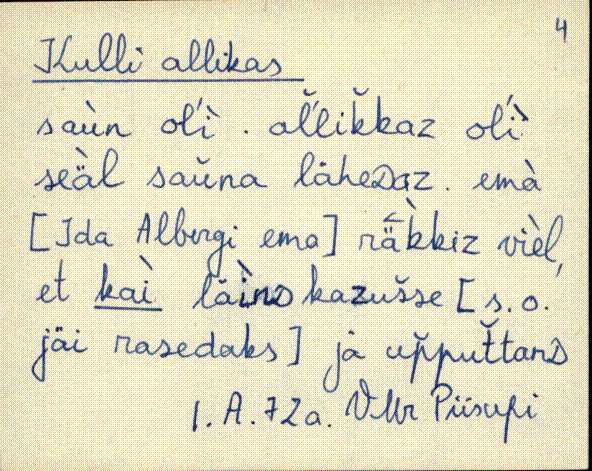 4
Kulli allikas
saùn oĺì . aĺľliǩkaz oĺì
seäl saŭna lähenDaz. emà
[Ida Albergi ema] rä̀kkiz vièl,
et kaì läìnD kazušse [s.o.
jäi rasedaks] jà up̆putťanD
1. A. 72a. VMr Piisupi